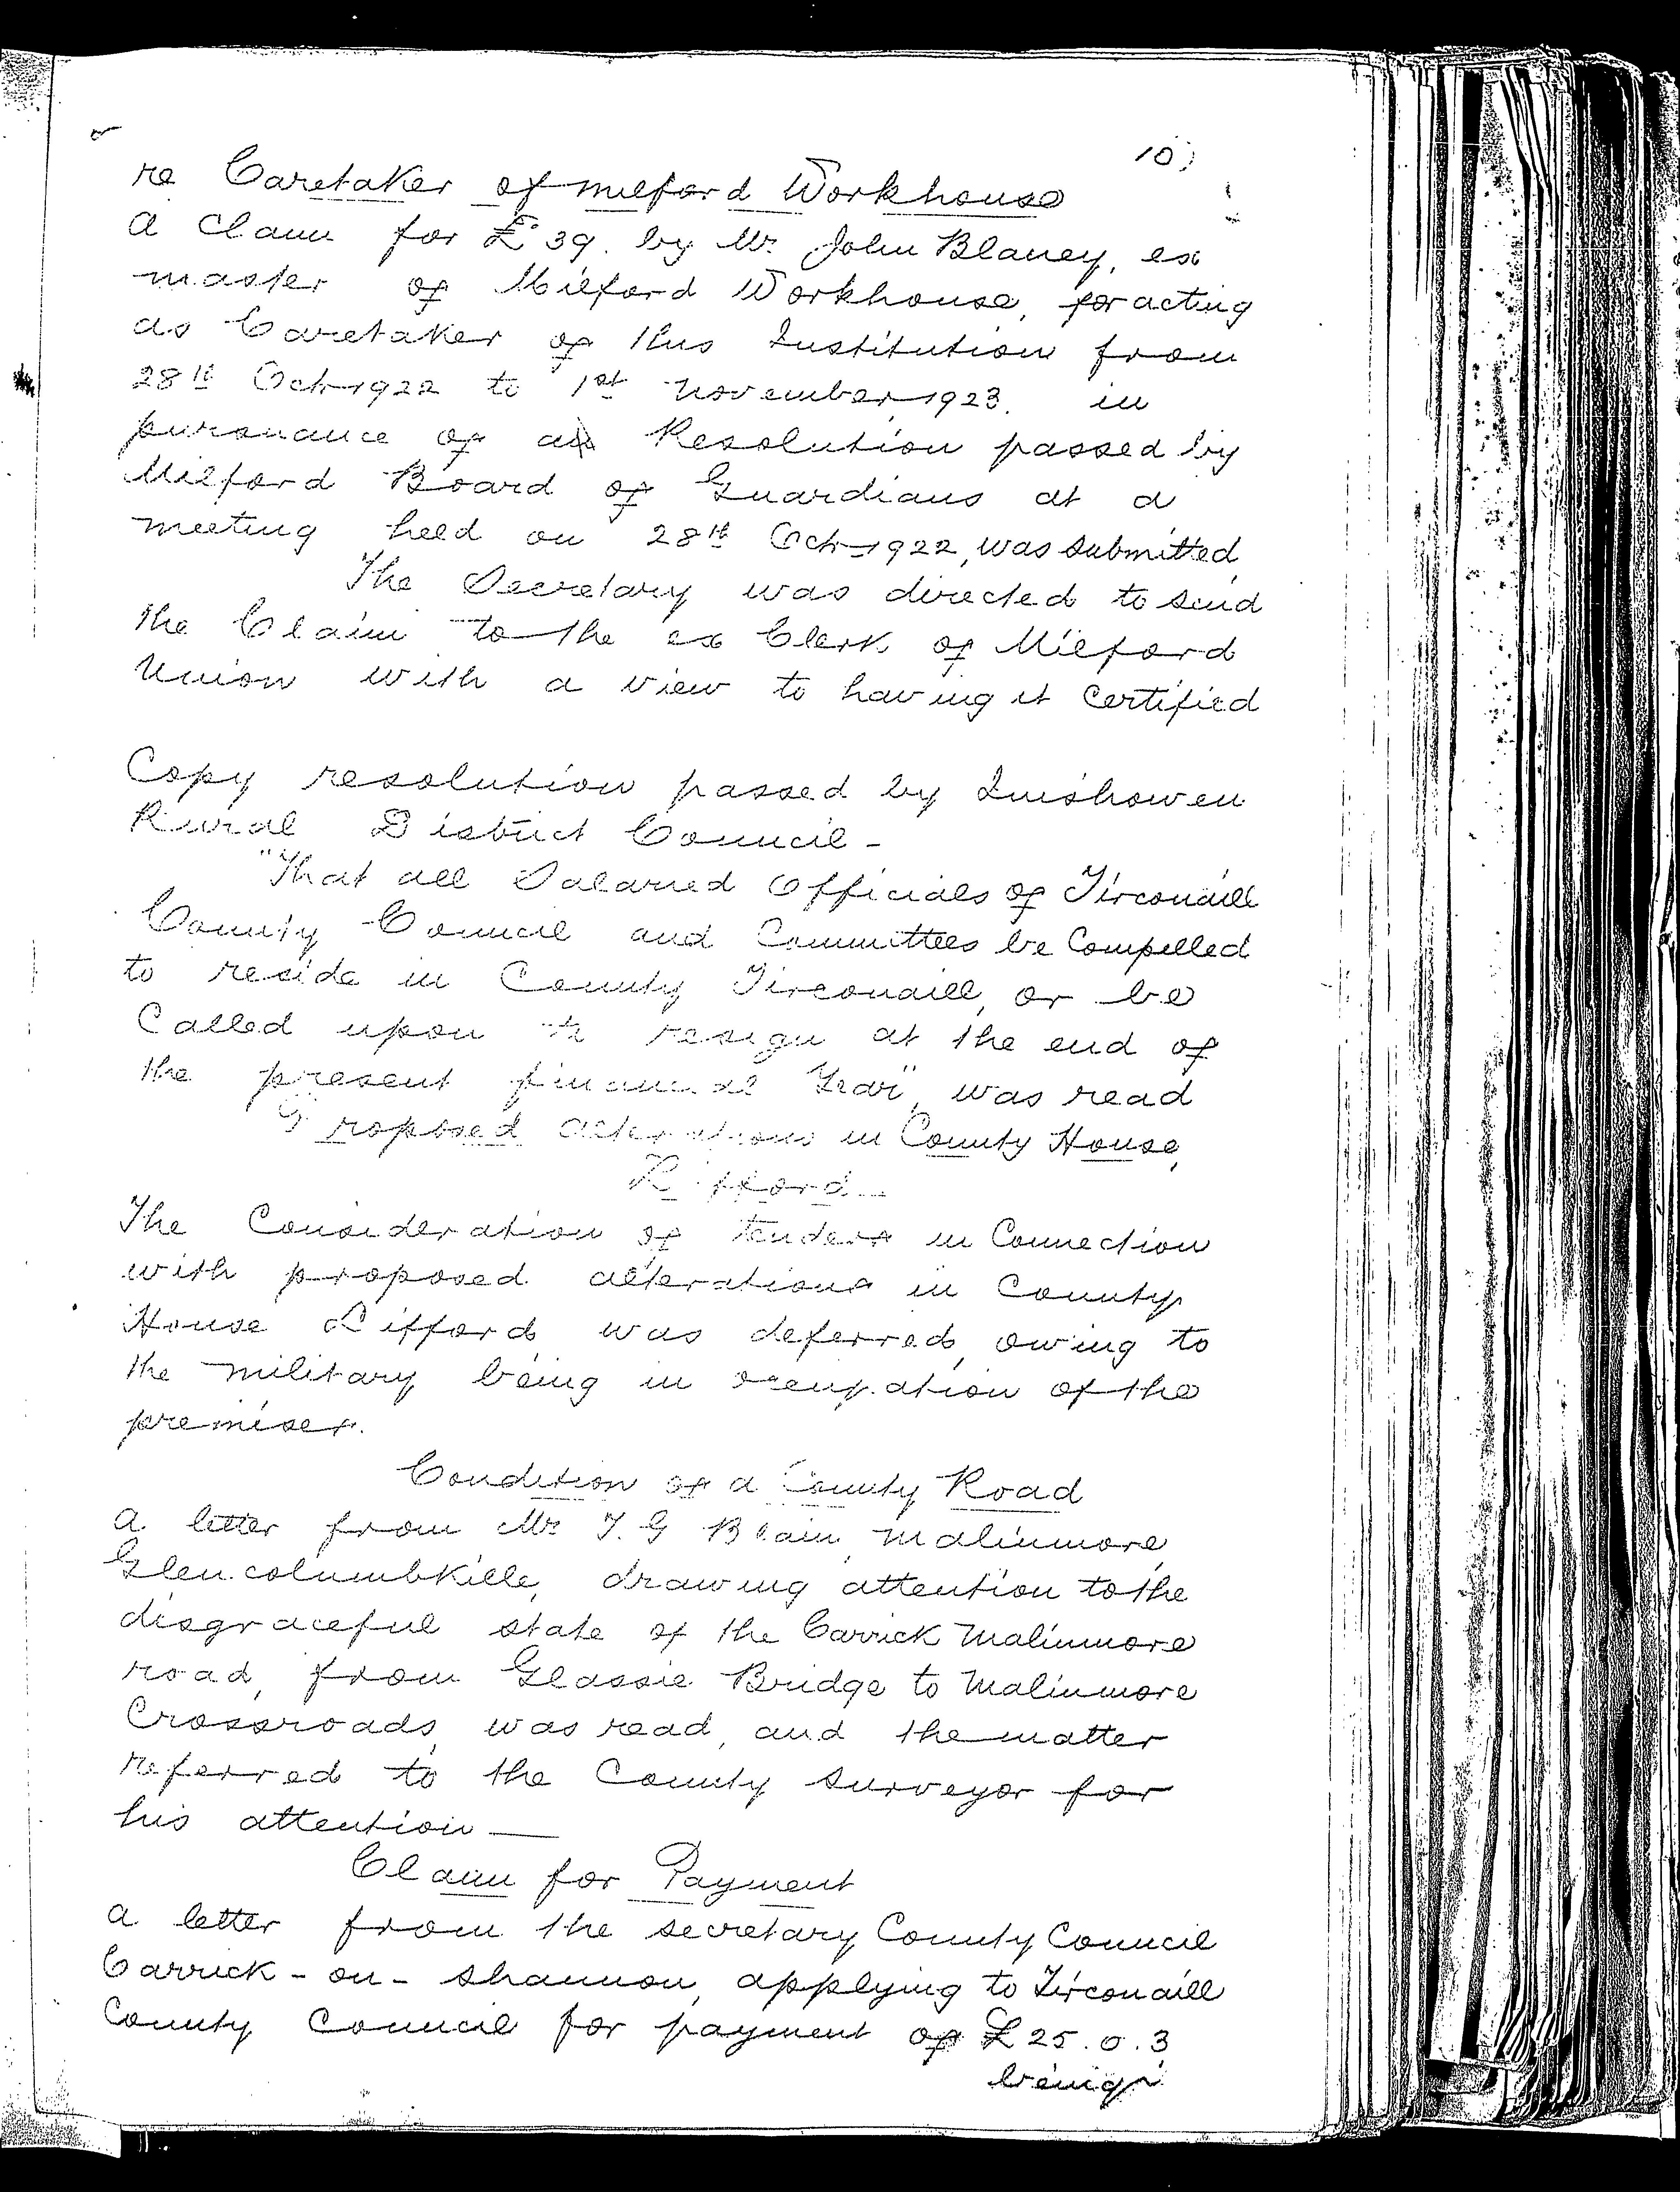 10)
re Caretaker of Milford Workhouse
A Claim for £39. by Mr. John Blaney, ex
master of Milford Workhouse, for acting
as Caretaker of this Institution from
28th Oct 1922 to 1st November 1923. in
pursuance of a Resolution passed by
Milford Board of Guardians at a
meeting held on 28th Oct 1922, was submitted
The Secretary was directed to send
the Claim to the ex Clerk of Milford
Union with a view to having it Certified
Copy resolution passed by Inishowen
Rural District Council -
"That all Salaried Officials of Tirconaill
County Council and Committees be Compelled
to reside in County Tirconaill, or be
Called upon to resign at the end of
the present financial Year", was read
Proposed alterations in County House,
Lifford
The Consideration of tenders in Connection
with proposed alterations in County
House Lifford, was deferred, owing to
the military being in occupation of the
premises.
Condition of a County Road
A letter from Mr T. G Blain, Malinmore,
Glencolumbkille, drawing attention to the
disgraceful state of the Carrick Malinmore
road, from Glassie Bridge to Malinmore
Crossroads, was read, and the matter
referred to the County Surveyor for
his attention —
Claim for Payment
A letter from the secretary County Council
Carrick-on-Shannon, applying to Tirconaill
County Council for payment of £25.0.3
being